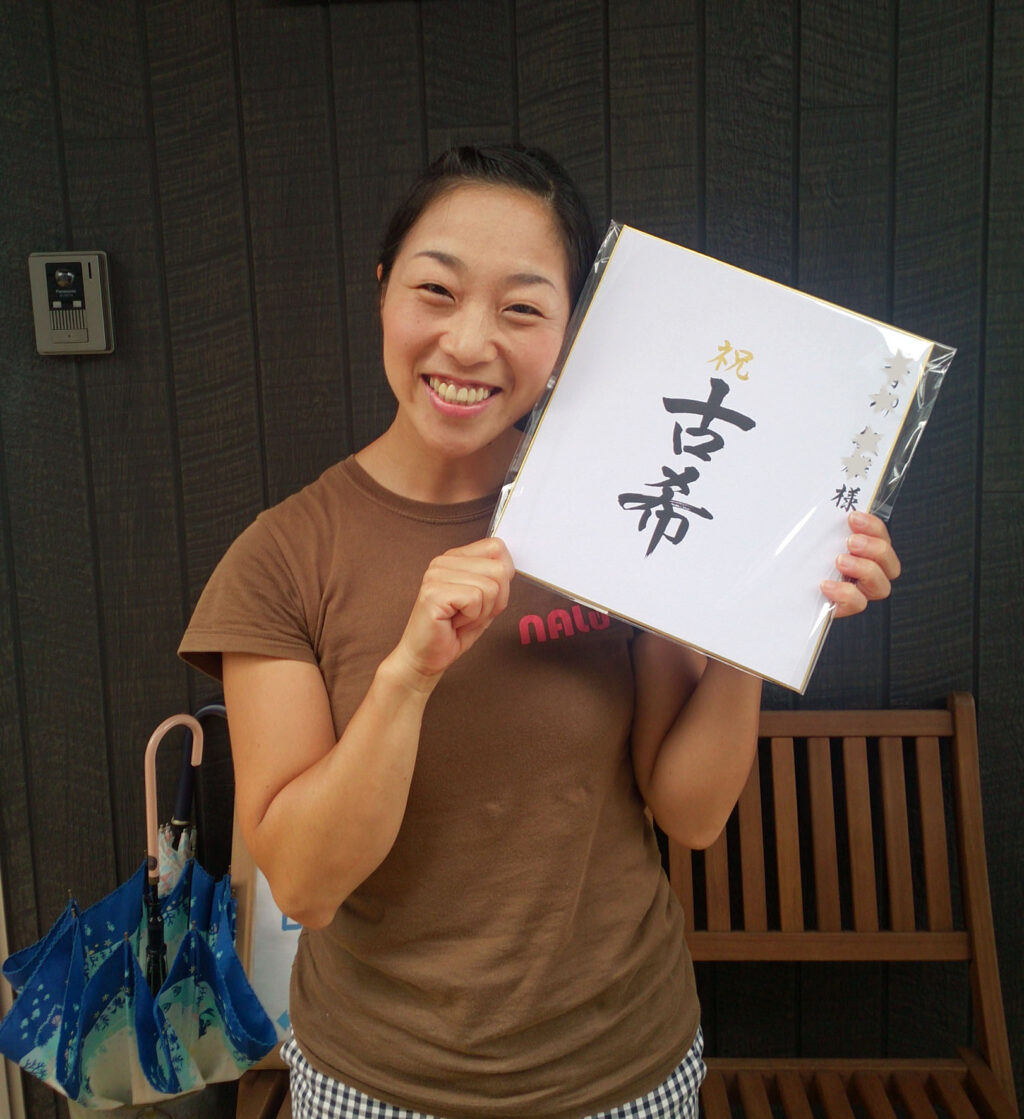 祝
古希
様
NALU
Panasonic